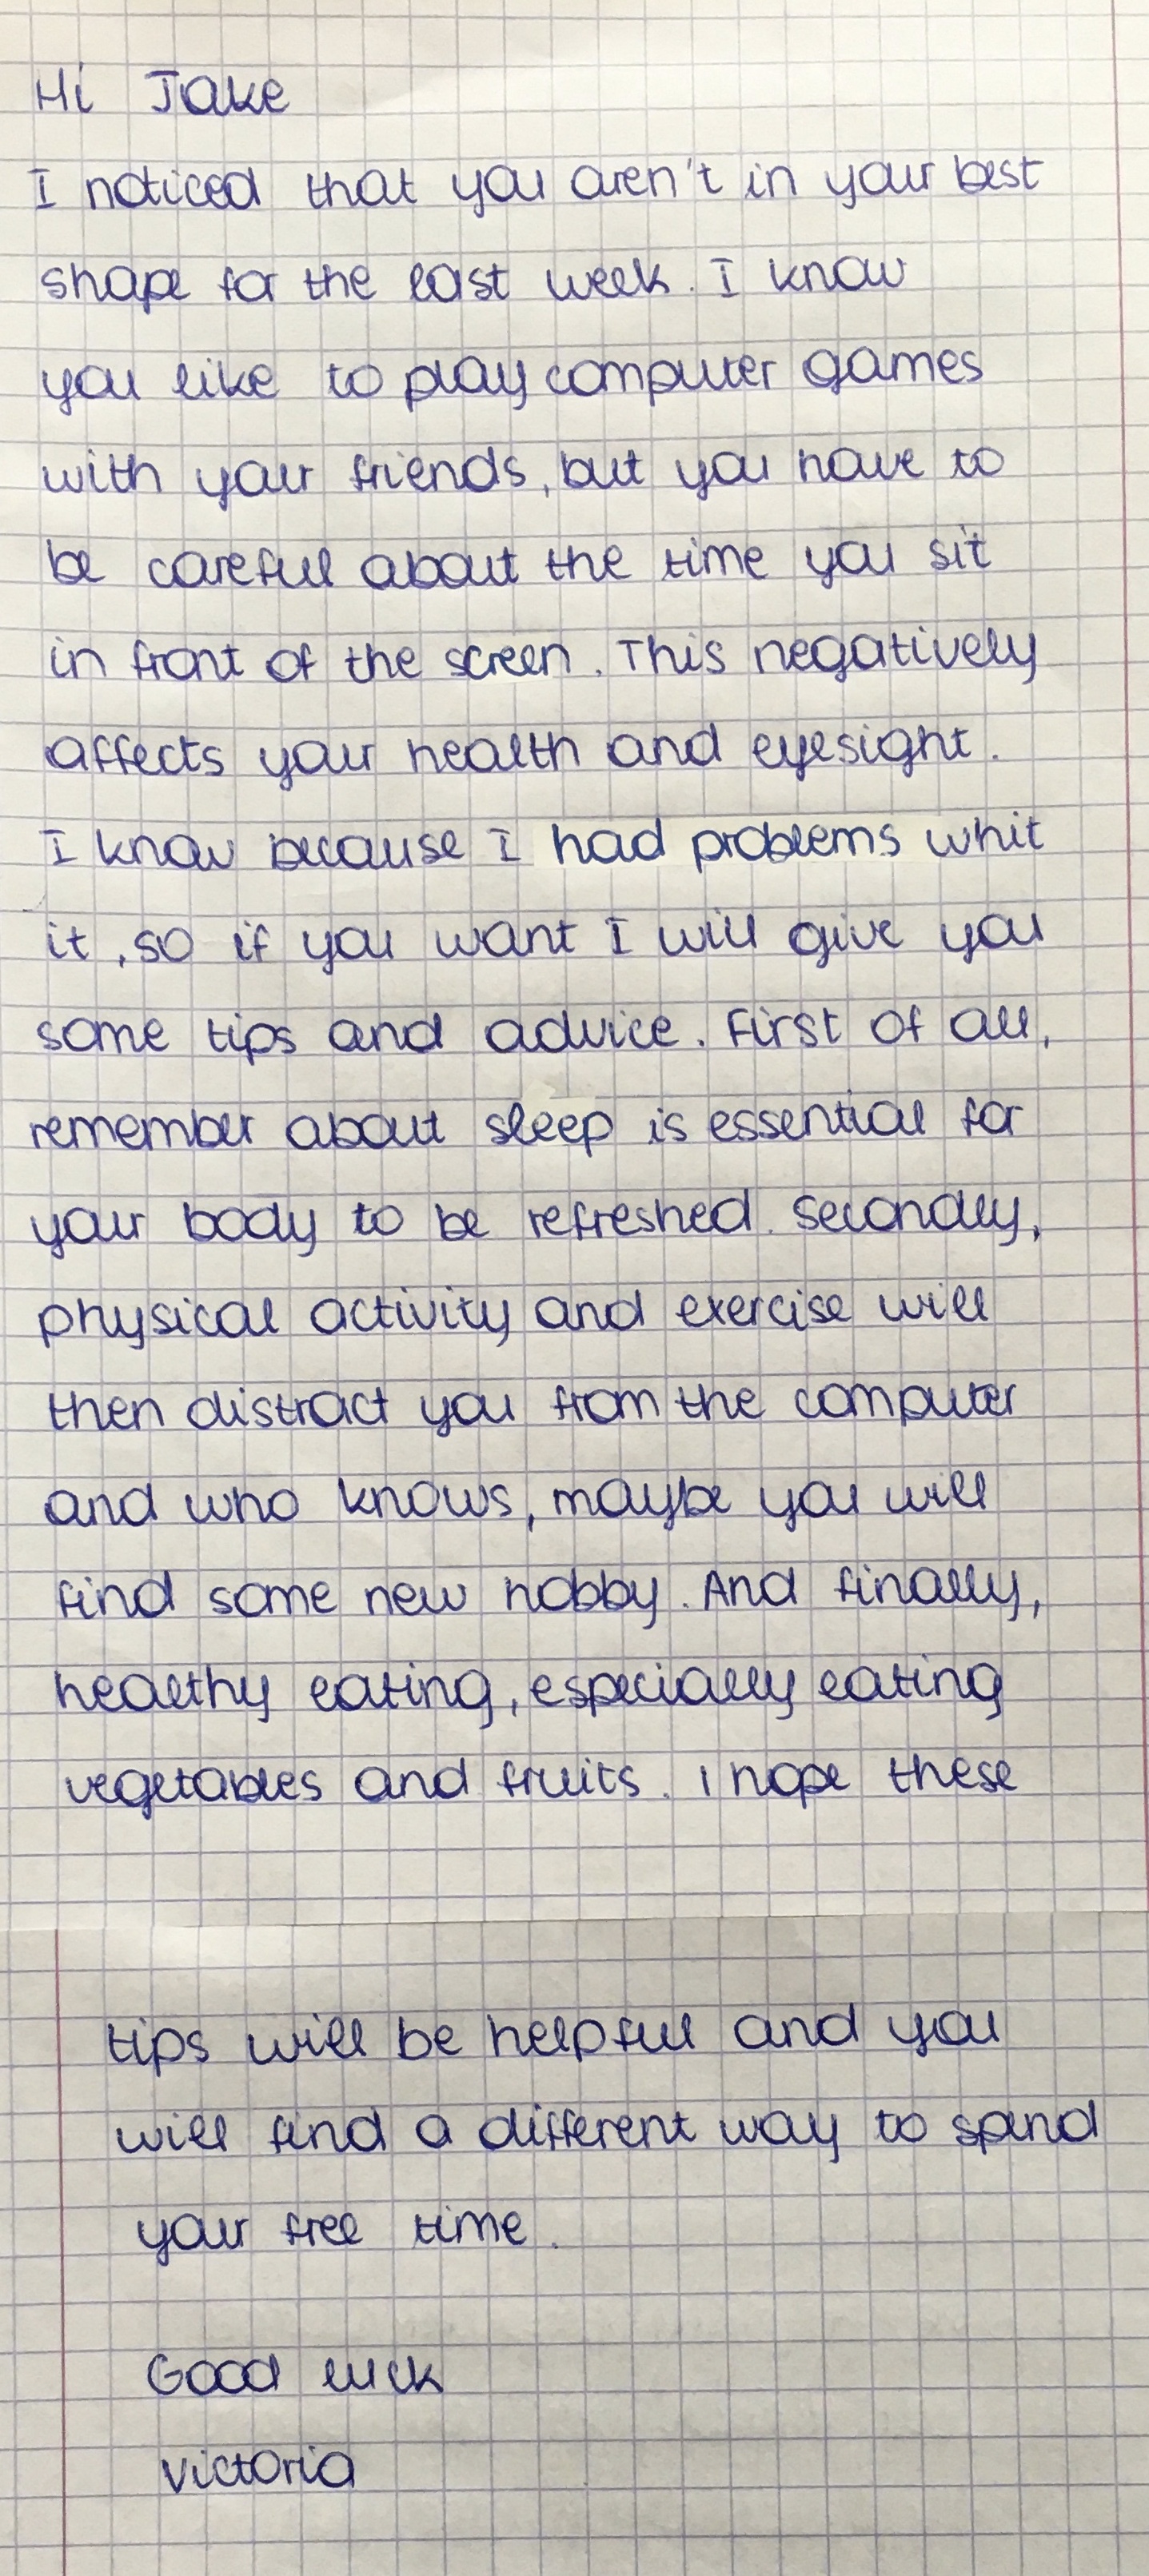 Hi Jake
I noticed that you aren't in your best
shape for the last week. I know
you like to play computer games
with your friends, but you have to
be careful about the time you sit
in front of the screen. This negatively
affects your health and eyesight.
I know because I had problems whit
it, so if you want I will give you
some tips and advice. First of all,
remember about sleep is essential for
your body to be refreshed. Secondly,
physical activity and exercise will
then distract you from the computer
and who knows, maybe you will
find some new hobby. And finally,
healthy eating, especially eating
vegetables and fruits. I hope these
tips will be helpful and you
will find a different way to spend
your free time.
Good luck
Victoria